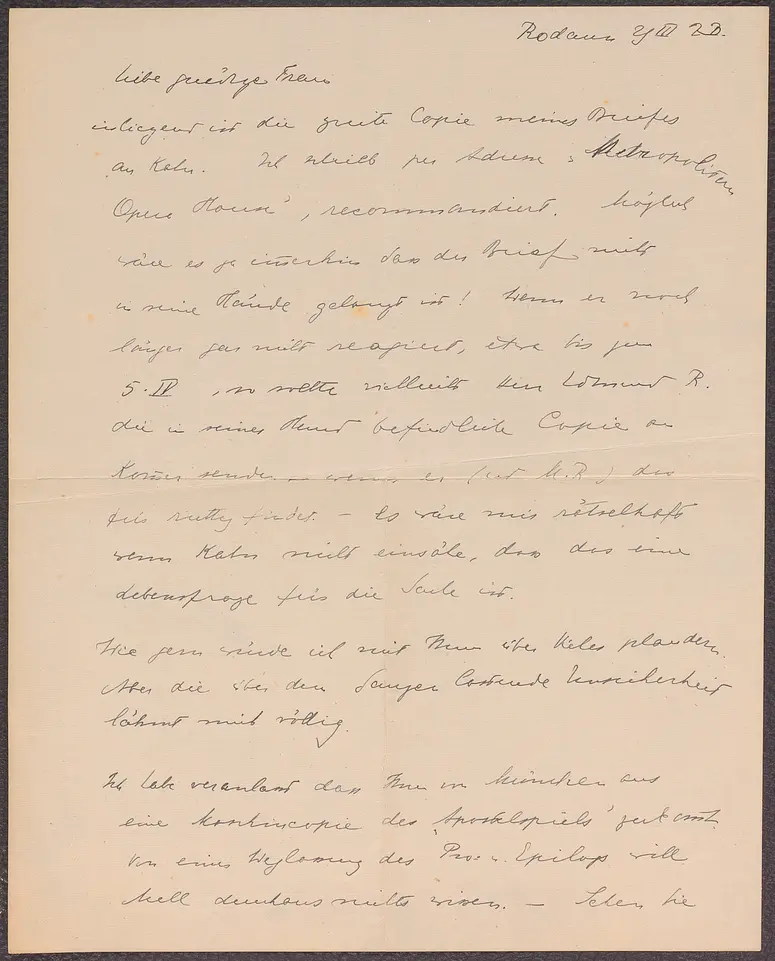 Rodaun 29 III 23.
liebe gnädige Frau
inliegend ist die zweite Copie meines Briefes
an Kahn. Ich schrieb per Adresse „Metropolitan
Opera House", recommandiert. Möglich
wäre es ja immerhin dass der Brief nicht
in seine Hände gelangt ist! Wenn er noch
länger gar nicht reagiert, etwa bis zum
5. IV, so sollte vielleicht Herr Edmund R.
die in seiner Hand befindliche Copie an
Kommer senden – wenn er (und M.R.) das
für richtig findet. – Es wäre mir rätselhaft
wenn Kahn nicht einsähe, dass das eine
Lebensfrage für die Sache ist.
Wie gern würde ich mit Ihnen über Vieles plaudern.
Aber die über dem Ganzen lastende Unsicherheit
lähmt mich völlig.
Ich habe veranlasst dass Ihnen von München aus
eine Maschincopie des „Apostelspiels" zukommt.
Von einer Weglassung des Pro- u. Epilogs will
Mell durchaus nichts wissen. – Sehen Sie